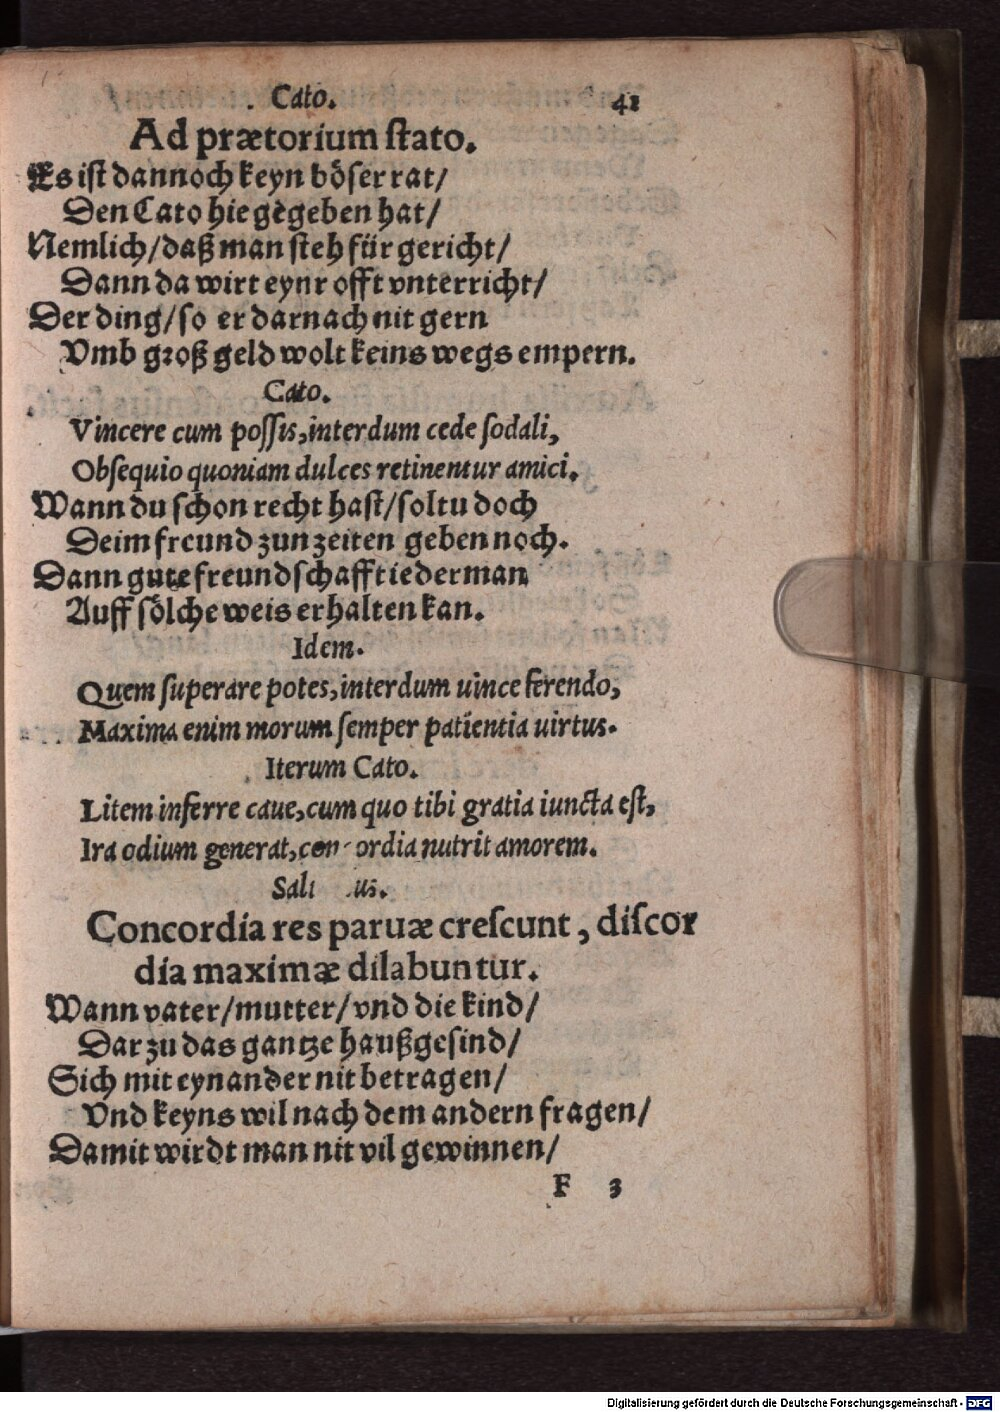 Cato. 41
Ad prætorium ſtato.
Es iſt dannoch keyn böſer rat/
Den Cato hie gegeben hat/
Nemlich/daß man ſteh für gericht/
Dann da wirt eynr offt vnterricht/
Der ding/so er darnach nit gern
Vmb groß geld wolt keins wegs empern.
Cato.
Vincere cum poſſis,interdum cede ſodali,
Obſequio quoniam dulces retinentur amici.
Wann du ſchon recht haſt/ſoltu doch
Deim freund zun zeiten geben noch.
Dann gute freundſchafft iederman
Auff ſölche weis erhalten kan.
Idem.
Quem ſuperare potes,interdum uince ferendo,
Maxima enim morum ſemper patientia uirtus.
Iterum Cato.
Litem inferre caue,cum quo tibi gratia iuncta eſt,
Ira odium generat,con ordia nutrit amorem.
Sal us.
Concordia res paruæ creſcunt, diſcor
dia maximæ dilabuntur.
Wann vater/mutter/vnd die kind/
Dar zu das gantze haußgeſind/
Sich mit eynander nit betragen/
Vnd keyns wil nach dem andern fragen/
Damit wirdt man nit vil gewinnen/
F 3
Digitalisierung gefördert durch die Deutsche Forschungsgemeinschaft - DFG